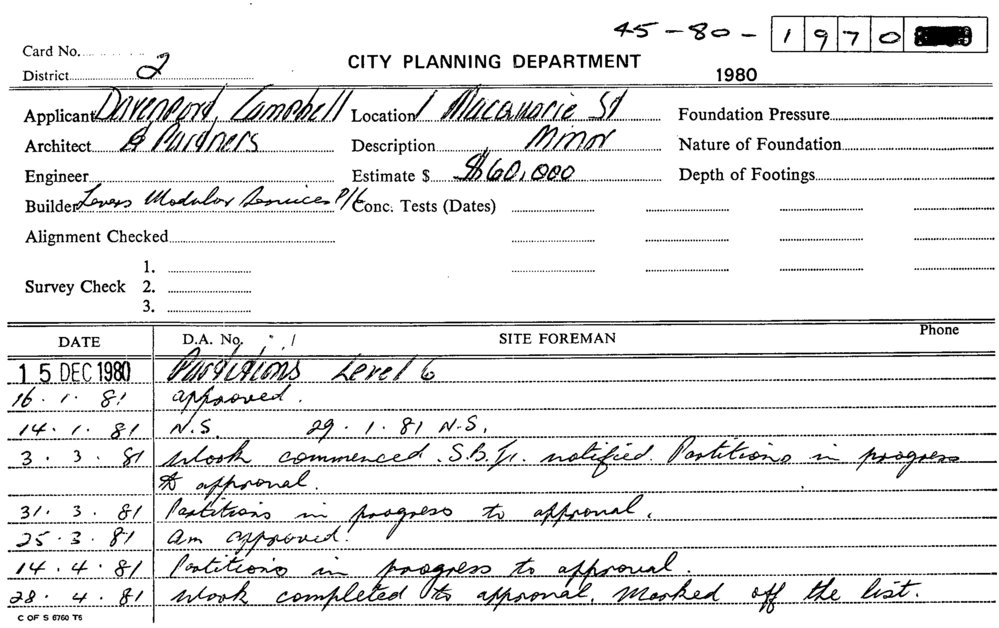 45-80- 1970
Card No.
CITY PLANNING DEPARTMENT
District 2
1980
Applicant Davenport, Campbell Location 1 Macquarie St Foundation Pressure
Architect & Partners Description Minor Nature of Foundation
Engineer Estimate $ $60,000 Depth of Footings
Builder Levers Modular Services P/L Conc. Tests (Dates)
Alignment Checked
1.
Survey Check 2.
3.
DATE D.A. No. SITE FOREMAN Phone
15 DEC 1980 Partitions Level 6
16.1.81 approved.
14.1.81 N.S. 29.1.81 N.S.
3.3.81 Work commenced. notified. Partitions in progress
to approval.
31.3.81 Partitions in progress to approval.
25.3.81 am approved.
14.4.81 Partitions in progress to approval.
28.4.81 Work completed to approval. Marked off the list.
C OF S 6760 T6